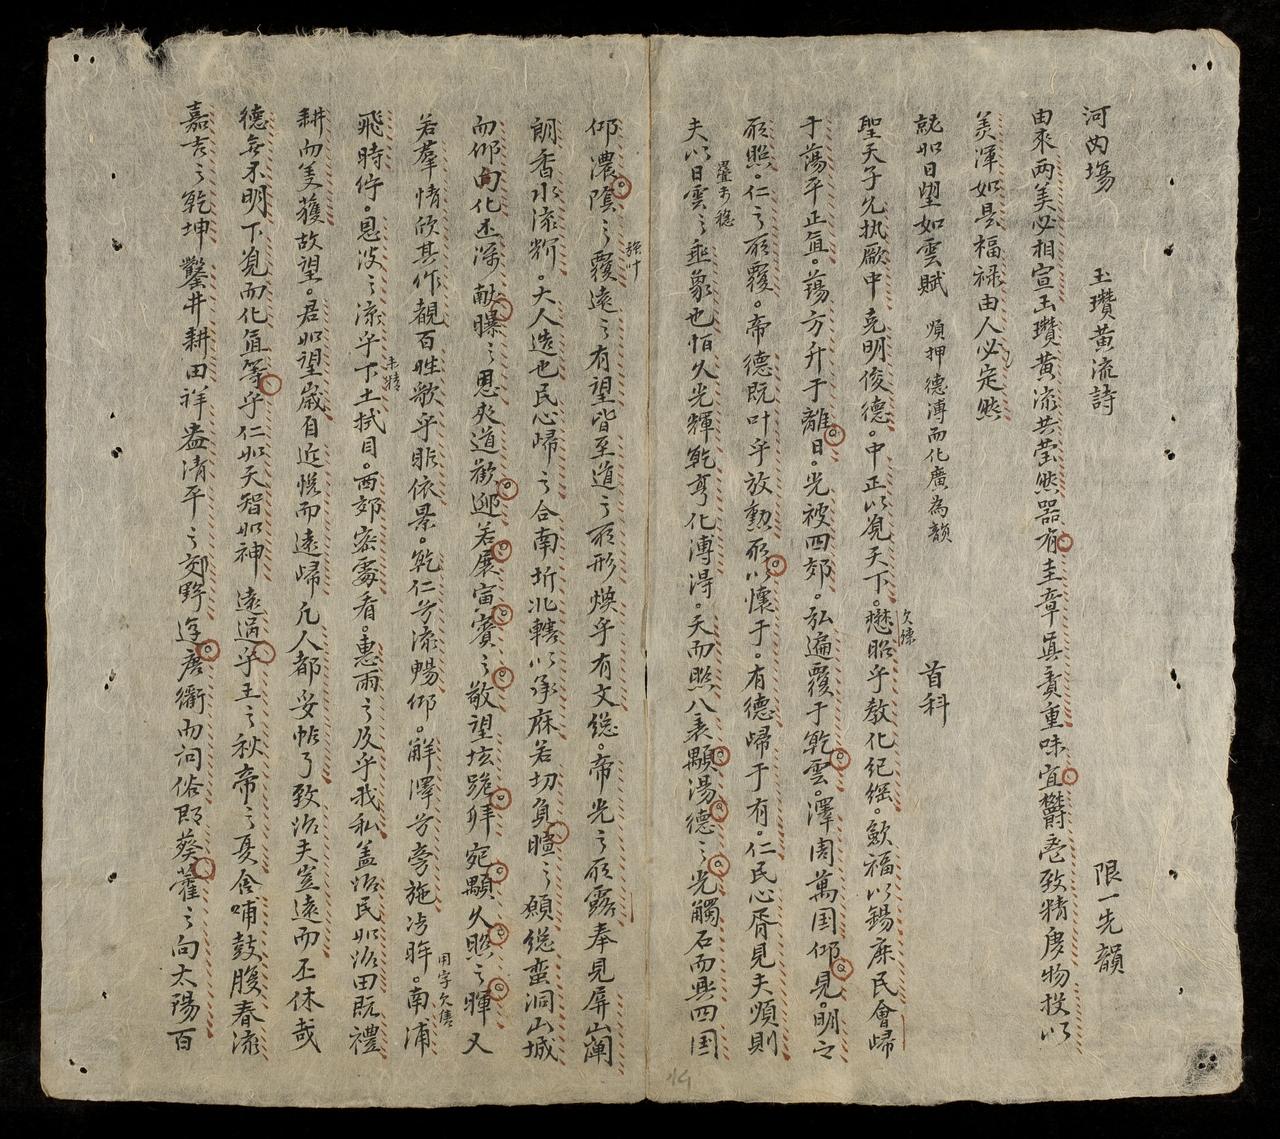 河内場 玉瓚黃流詩 限一先韻
由來两美必相宣玉瓚黃流共瑩然器有圭章真貴重味宜欝鬯致精虔物投以
美渾如是福禄由人必定然
就如日望如雲賦 順押德溥而化廣為韻 首科
聖天子允执厥中克明俊德。中正以覌天下。懋昭乎教化紀綱。欽福以錫庶民會歸
欠穩
于蕩平正直。蕩方升于離日。光被四郊。弘遍覆于乾雲。澤周萬国仰見。明之
所照。仁之所覆。帝德既叶乎放勳所以懷于。有德歸于有。仁民心胥見夫順則
夫以日雲之垂象也怕久光輝乾亨化溥淂。天而照八表顯湯德之光觸石而興四国
疊未穏
仰濃陰之覆遠之有望皆至道之所形煥乎有文緫。帝光之所露奉見屏山蘭
朗香水流輝。大人造也民心歸之合南圻北轄以承庥若切負暄之願緫蛮洞山城
而仰向化丕深献曝之思夾道歡迎若展寅賓之敬望垓跪拜宛顯久照之暉又
若羣情欣其作覩百姓歌乎瞻依景。乾仁兮流暢仰。觧澤兮旁施洁眸。南浦
用字欠雋
飛時佇。恩波之流乎下土拭目。西郊密雲看。惠雨之及乎我私盖治民如治田既禮
未精
耕而美獲故望。君如望歲自近悦而遠歸凡人都妥帖了致治夫豈遠而丕休哉
德無不明下覌而化直等乎仁如天智如神 遠過乎王之秋帝之夏含哺鼓腹春流
嘉吉之乾坤鑿井耕田祥益清平之郊野逰唐衢而问俗即葵藿之向太陽百